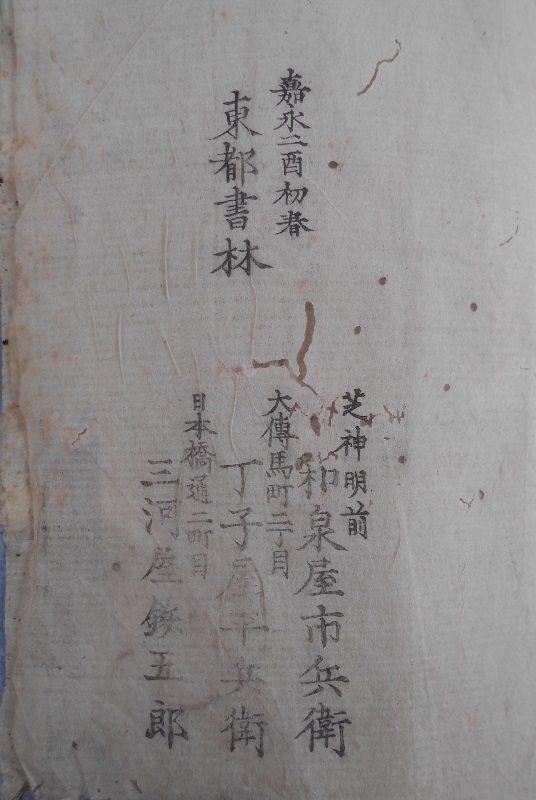 嘉永二酉初春
東都書林
芝神明前
和泉屋市兵衛
大傳馬町二丁目
丁子屋平兵衛
日本橋通二町目
三河屋鉄五郎